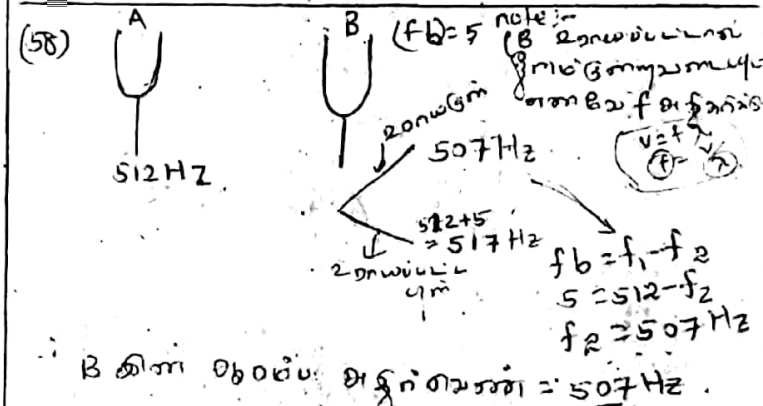 (58) A B (fb)=5 note:-
(B உராயப்பட்டால்
எனவே f அதிகரிக்கும்
v=fλ
f= λ
உராயமுன்
512 HZ
507 Hz
512+5
= 517 Hz
உராயப்பட்ட
பின்
fb = f₁-f₂
5 = 512-f₂
f₂ = 507 Hz
∴ B கின் ஆரம்ப அதிர்வெண் = 507 Hz.